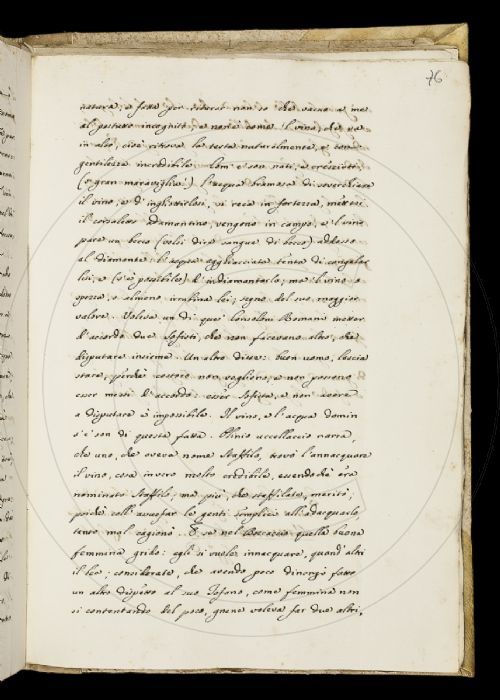 76
natura, e fatta per ridersi non so che vacuo a me
al postutto incognito, e non è come il vino, che va
in alto, cioè ritrova la testa naturalmente, e con
gentilezza incredibile. Com' e' son nati, e cresciuti,
(o gran maraviglia!) l'acqua bramosa di soverchiare
il vino, e d' inghiottirlosi, si reca in fortezza, mettesi
il corsaletto adamantino, vengono in campo, e 'l vino
pare un becco (volsi dire sangue di becco) addosso
al diamante: l'acqua agghiacciata tenta di congelar
lui, e (s'è possibile) d' indiamantarlo, ma 'l vino o
spezza, o almeno intufina lei; segno del suo maggior
valore. Voleva un di que' Consoloni Romani metter
d'accordo due Sofisti, che non facevano altro, che
disputare insieme. Un altro disse: buon uomo, lascia
stare, perchè costoro non vogliono, e non possono
esser messi d'accordo: esser Sofista, e non avere
a disputare è impossibile. Il vino, e l'acqua domin
s'e' son di questa fatta. Plinio uccellaccio narra,
che uno, che aveva nome Staffilo, trovò l'annacquare
il vino, cosa invero molto credibile, essendochè era
nominato Staffilo; ma più, che staffilate, meritò;
poichè coll' avvezzar le genti semplici all' adacquarlo,
tenne mal ragioni. E se nel Boccaccio quella buona
femmina gridò: egli si vuole innacquare, quand' altri
il bee: considerate, che avendo poco dinanzi fatto
un altro dispetto al suo Tofano, come femmina non
si contentando del poco, gnene voleva far due altri,